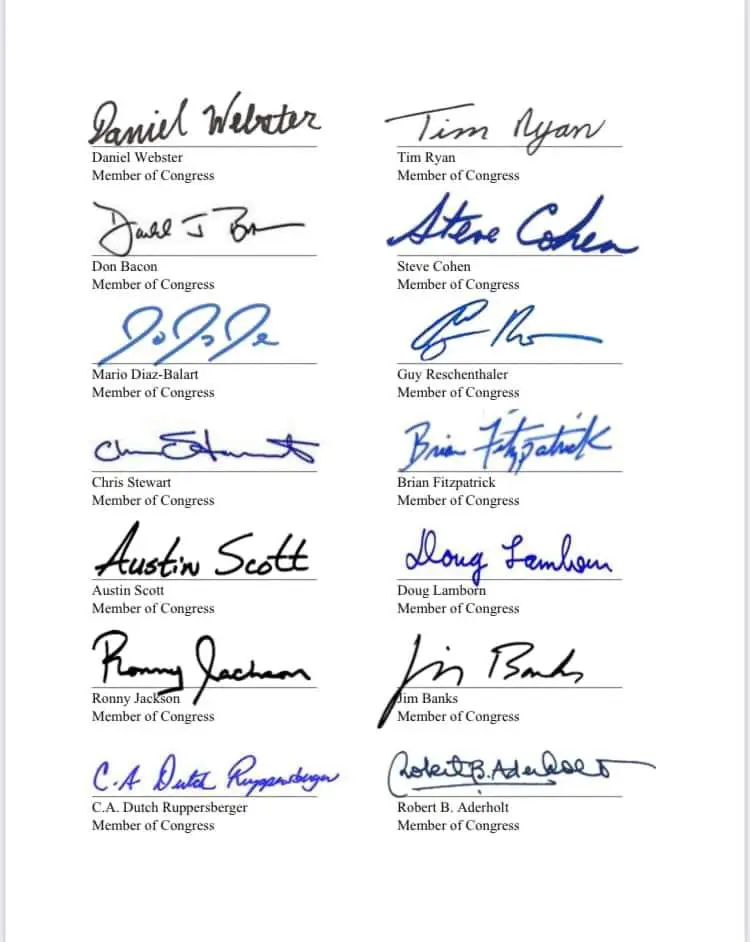 Daniel Webster Tim Ryan
Daniel Webster Tim Ryan
Member of Congress Member of Congress
Don Bacon Steve Cohen
Steve Cohen
Member of Congress Member of Congress
Mario Diaz-Balart Guy Reschenthaler
Member of Congress Member of Congress
Brian Fitzpatrick
Chris Stewart Brian Fitzpatrick
Member of Congress Member of Congress
Austin Scott Doug Lamborn
Austin Scott Doug Lamborn
Member of Congress Member of Congress
Ronny Jackson Jim Banks
Ronny Jackson Jim Banks
Member of Congress Member of Congress
C.A Dutch Ruppersberger Robert B. Aderholt
C.A. Dutch Ruppersberger Robert B. Aderholt
Member of Congress Member of Congress